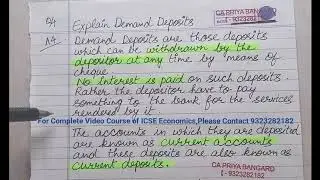 Q4 Explain Demand Deposits
CA PRIYA BANGARD
- 9323282182
A4. Demand Deposits are those deposits
which can be withdrawn by the
depositor at any time by means of
cheque.
No Interest is paid on such deposits.
Rather the depositor have to pay
something to the bank for the services
rendered by it.
For Complete Video Course of ICSE Economics,Please Contact 9323282182
The accounts in which they are deposited
are known as current accounts
and these deposits are also known as
current deposits.
CA PRIYA BANGARD
- 9323282182